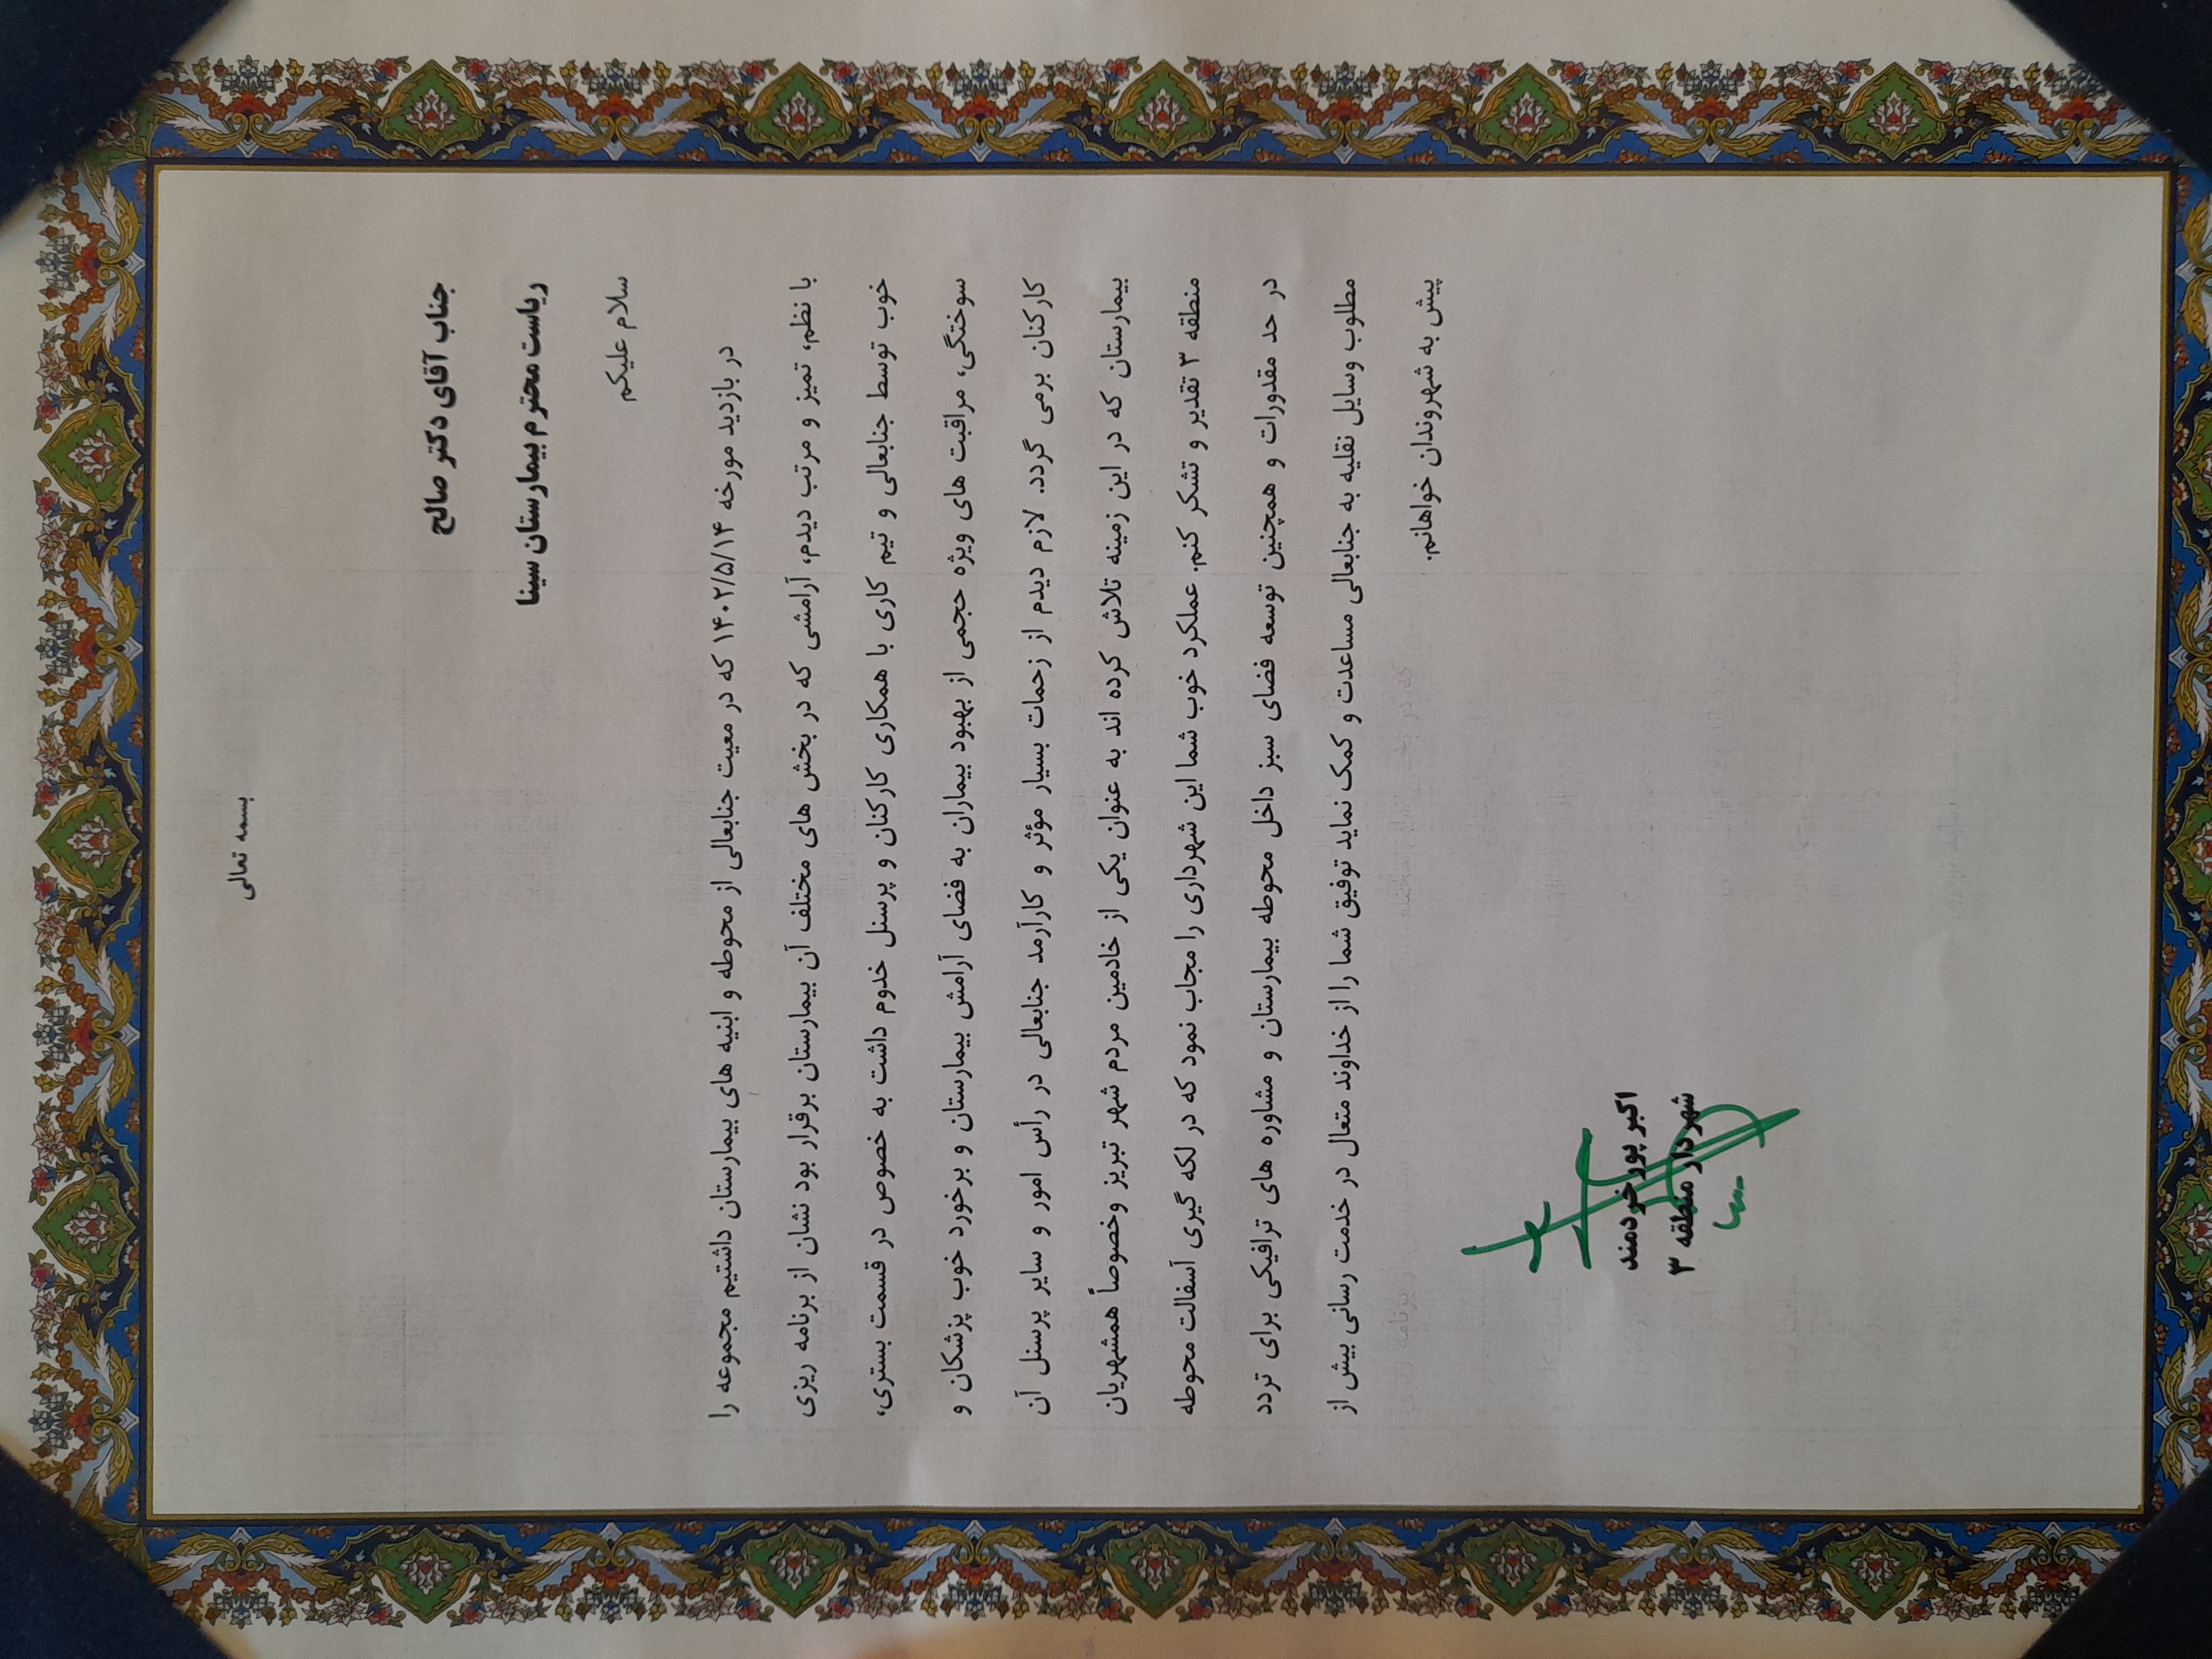 بسمه تعالی
جناب آقای دکتر صالح
ریاست محترم بیمارستان سینا
سلام علیکم
در بازدید مورخه ۱۴۰۲/۵/۱۴ که در معیت جنابعالی از محوطه و ابنیه های بیمارستان داشتیم مجموعه را
با نظم، تمیز و مرتب دیدم، آرامشی که در بخش های مختلف آن بیمارستان برقرار بود نشان از برنامه ریزی
خوب توسط جنابعالی و تیم کاری با همکاری کارکنان و پرسنل خدوم داشت به خصوص در قسمت بستری،
سوختگی، مراقبت های ویژه حجمی از بهبود بیماران به فضای آرامش بیمارستان و برخورد خوب پزشکان و
کارکنان برمی گردد. لازم دیدم از زحمات بسیار مؤثر و کارآرمد جنابعالی در رأس امور و سایر پرسنل آن
بیمارستان که در این زمینه تلاش کرده اند به عنوان یکی از خادمین مردم شهر تبریز وخصوصاً همشهریان
منطقه ۳ تقدیر و تشکر کنم. عملکرد خوب شما این شهرداری را مجاب نمود که در لکه گیری آسفالت محوطه
در حد مقدورات و همچنین توسعه فضای سبز داخل محوطه بیمارستان و مشاوره های ترافیکی برای تردد
مطلوب وسایل نقلیه به جنابعالی مساعدت و کمک نماید توفیق شما را از خداوند متعال در خدمت رسانی بیش از
پیش به شهروندان خواهانم.
اکبر پورخردمند
شهردار منطقه ۳